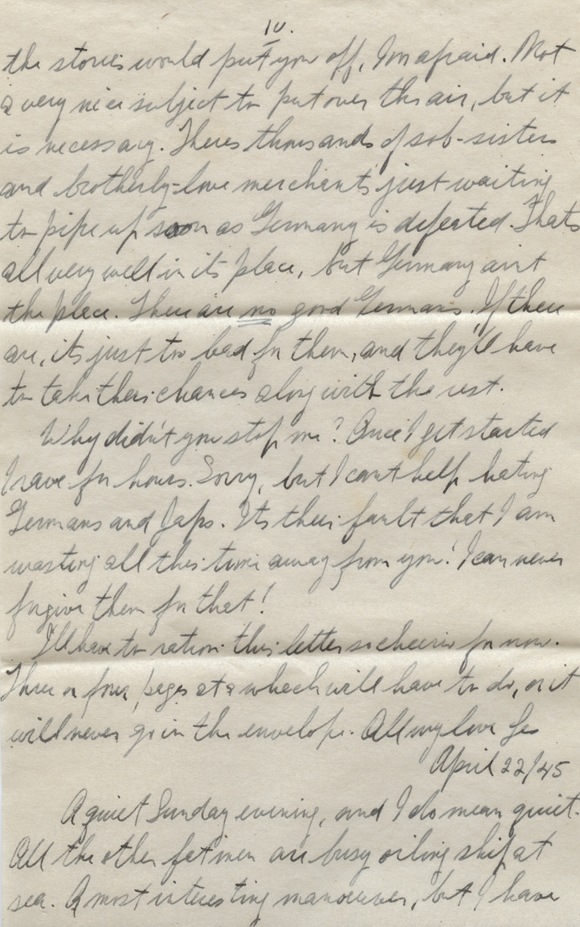 10.
the stories would put you off, I'm afraid. Not
a very nice subject to put over the air, but it
is necessary. There's thousands of sob-sisters
and brotherly-love merchants just waiting
to pipe up soon as Germany is defeated. Thats
all very well in its place, but Germany aint
the place. There are no good Germans. If there
are, its just too bad for them, and they'll have
to take their chances along with the rest.
Why didn't you stop me? Once I get started
I rave for hours. Sorry, but I can't help hating
Germans and Japs. Its their fault that I am
wasting all this time away from you! I can never
forgive them for that!
I'll have to ration this letter so cheerio for now.
Three or four pages at a whack will have to do, or it
will never go in the envelope. All my love Les
April 22/45
A quiet Sunday evening, and I do mean quiet.
All the other men are busy oiling ship at
sea. A most interesting manoeuver, but I have